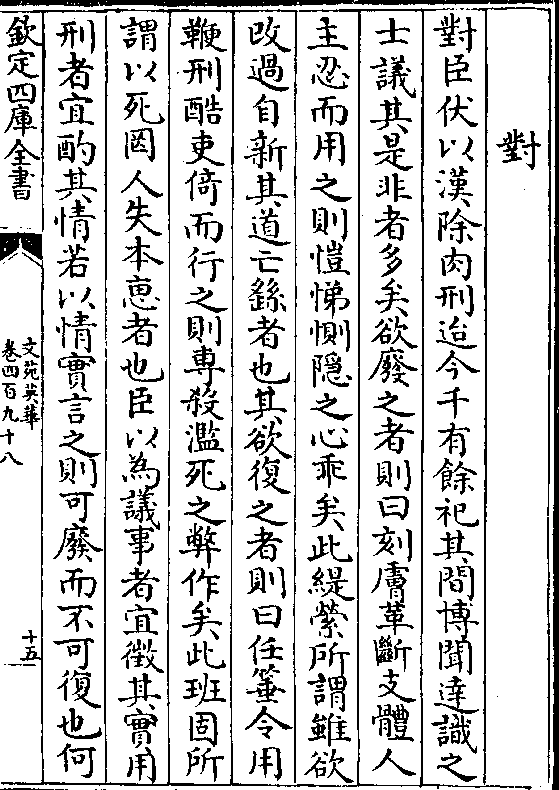 對
對臣伏以漢除肉刑迨今千有餘祀其間博聞達識之
士議其是非者多矣欲廢之者則曰刻膚革斷支體人
主忍而用之則愷悌惻隠之心乖矣此緹縈所謂雖欲
改過自新其道亡繇者也其欲復之者則曰任箠令用
鞭刑酷吏倚而行之則専殺濫死之弊作矣此班固所
謂以死罔人失本恵者也臣以為議事者宜徴其實用
刑者宜酌其情若以情實言之則可廢而不可復也何
欽定四庫全書
文苑英華
卷四百九十八
十五